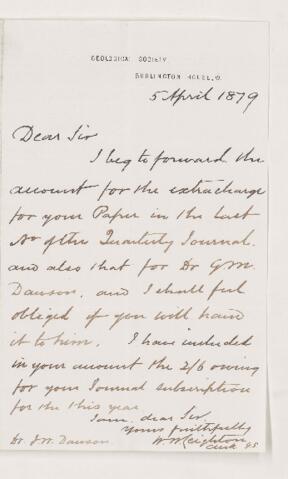 GEOLOGICAL SOCIETY.
BURLINGTON HOUSE, W.
5 April 1879
Dear Sir
I beg to forward the
account for the extra charge
for your Paper in the last
No of the Quarterly Journal.
and also that for Dr G M.
Dawson, and I shall feel
obliged if you will hand
it to him. I have included
in your account the 2/6 owing
for your Journal subscription
for the this year
I am, dear Sir,
Yours faithfully
W. W. Leighton
Clerk GS
Dr J W. Dawson.